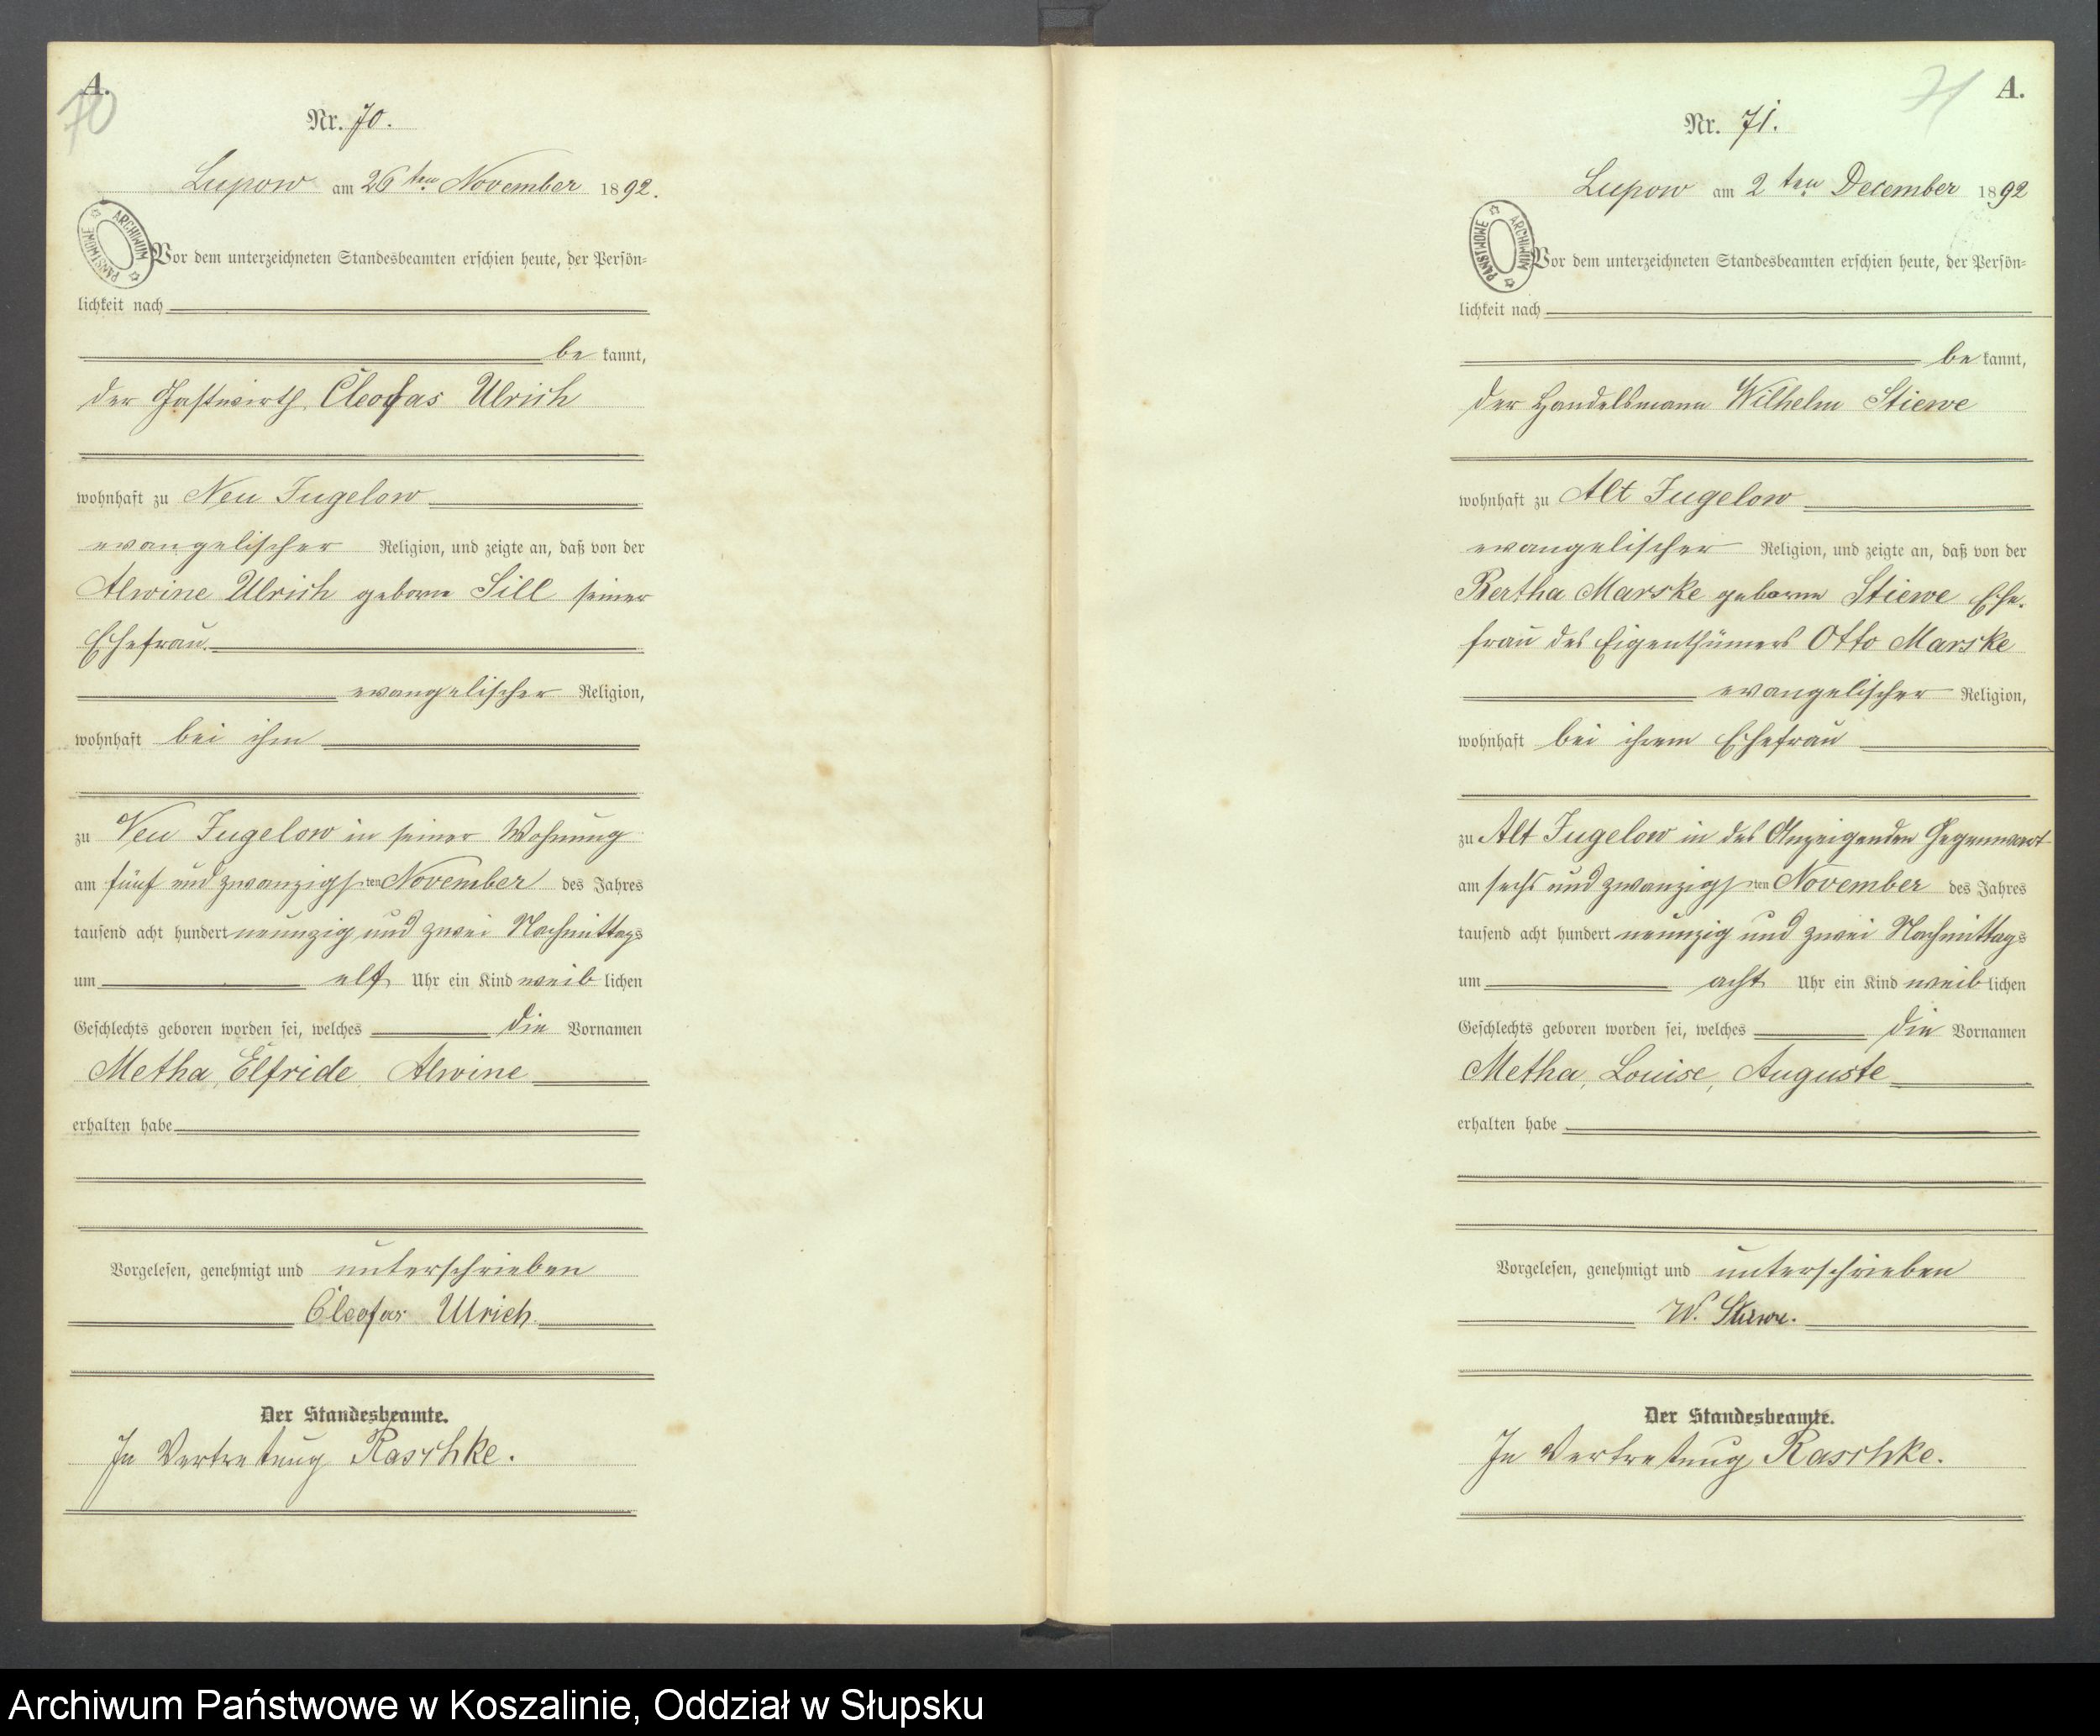 A.
70
Nr. 70.
Lupow am 26ten November 1892.
ARCHIWUM PAŃSTWOWE
Vor dem unterzeichneten Standesbeamten erschien heute, der Persön-
lichkeit nach
be kannt,
der Gastwirth Cleofas Ulrich
wohnhaft zu Neu Jugelow
evangelischer Religion, und zeigte an, daß von der
Alwine Ulrich geborne Sill seiner
Ehefrau.
evangelischer Religion,
wohnhaft bei ihm
zu Neu Jugelow in seiner Wohnung
am fünf und zwanzigsten November des Jahres
tausend acht hundert neunzig und zwei Nachmittags
um elf Uhr ein Kind weib lichen
Geschlechts geboren worden sei, welches die Vornamen
Metha, Elfride, Alwine
erhalten habe
Vorgelesen, genehmigt und unterschrieben
Cleofas Ulrich.
Der Standesbeamte.
In Vertretung Raschke.
A.
71
Nr. 71.
Lupow am 2ten December 1892
ARCHIWUM PAŃSTWOWE
Vor dem unterzeichneten Standesbeamten erschien heute, der Persön-
lichkeit nach
be kannt,
der Handelsmann Wilhelm Stiewe
wohnhaft zu Alt Jugelow
evangelischer Religion, und zeigte an, daß von der
Bertha Marske geborne Stiewe Ehe-
frau des Eigenthümers Otto Marske
evangelischer Religion,
wohnhaft bei ihrem Ehefrau
zu Alt Jugelow in des Anzeigenden Gegenwart
am sechs und zwanzigsten November des Jahres
tausend acht hundert neunzig und zwei Nachmittags
um acht Uhr ein Kind weib lichen
Geschlechts geboren worden sei, welches die Vornamen
Metha, Louise, Auguste
erhalten habe
Vorgelesen, genehmigt und unterschrieben
W. Stiewe.
Der Standesbeamte.
In Vertretung Raschke.
Archiwum Państwowe w Koszalinie, Oddział w Słupsku